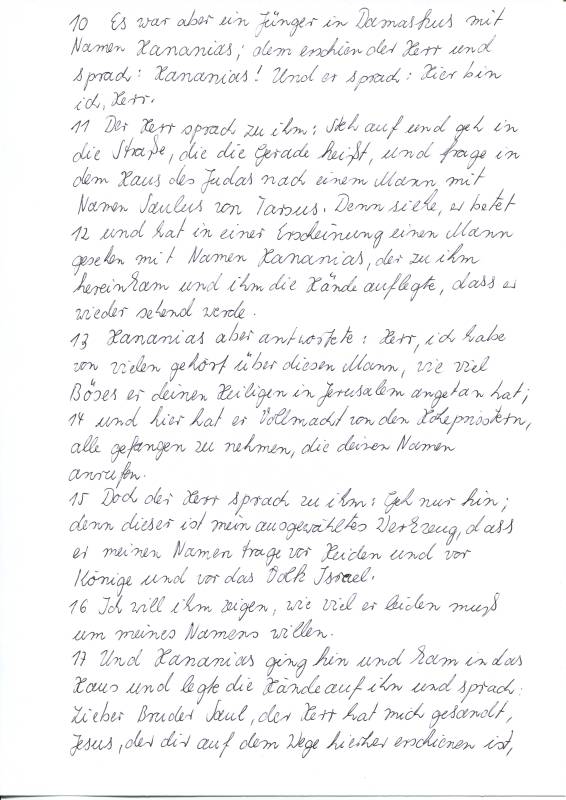 10 Es war aber ein Jünger in Damaskus mit
Namen Hananias; dem erschien der Herr und
sprach: Hananias! Und er sprach: Hier bin
ich, Herr.
11 Der Herr sprach zu ihm: Steh auf und geh in
die Straße, die die Gerade heißt, und frage in
dem Haus des Judas nach einem Mann mit
Namen Saulus von Tarsus. Denn siehe, er betet
12 und hat in einer Erscheinung einen Mann
gesehen mit Namen Hananias, der zu ihm
hereinkam und ihm die Hände auflegte, dass er
wieder sehend werde.
13 Hananias aber antwortete: Herr, ich habe
von vielen gehört über diesen Mann, wie viel
Böses er deinen Heiligen in Jerusalem angetan hat;
14 und hier hat er Vollmacht von den Hohepriestern,
alle gefangen zu nehmen, die deinen Namen
anrufen.
15 Doch der Herr sprach zu ihm: Geh nur hin;
denn dieser ist mein auserwähltes Werkzeug, dass
er meinen Namen trage vor Heiden und vor
Könige und vor das Volk Israel.
16 Ich will ihm zeigen, wie viel er leiden muß
um meines Namens willen.
17 Und Hananias ging hin und kam in das
Haus und legte die Hände auf ihn und sprach:
Lieber Bruder Saul, der Herr hat mich gesandt,
Jesus, der dir auf dem Wege hierher erschienen ist,